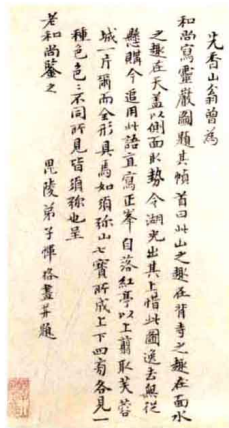 先香山翁曾為
和尚寫靈巖圖題其幀首曰此山之趣在背寺之趣在面水
之趣在天盖以側面取勢令湖光出其上惜此圖逸去無從
懸購今追用此語直寫正峯自落紅亭以上翦取芙蓉
城一片爾而全形具焉如須弥山七寶所成上下四旁各見一
種色色色不同所見皆須弥也呈
老和尚鑒之
毘陵弟子惲格畫并題